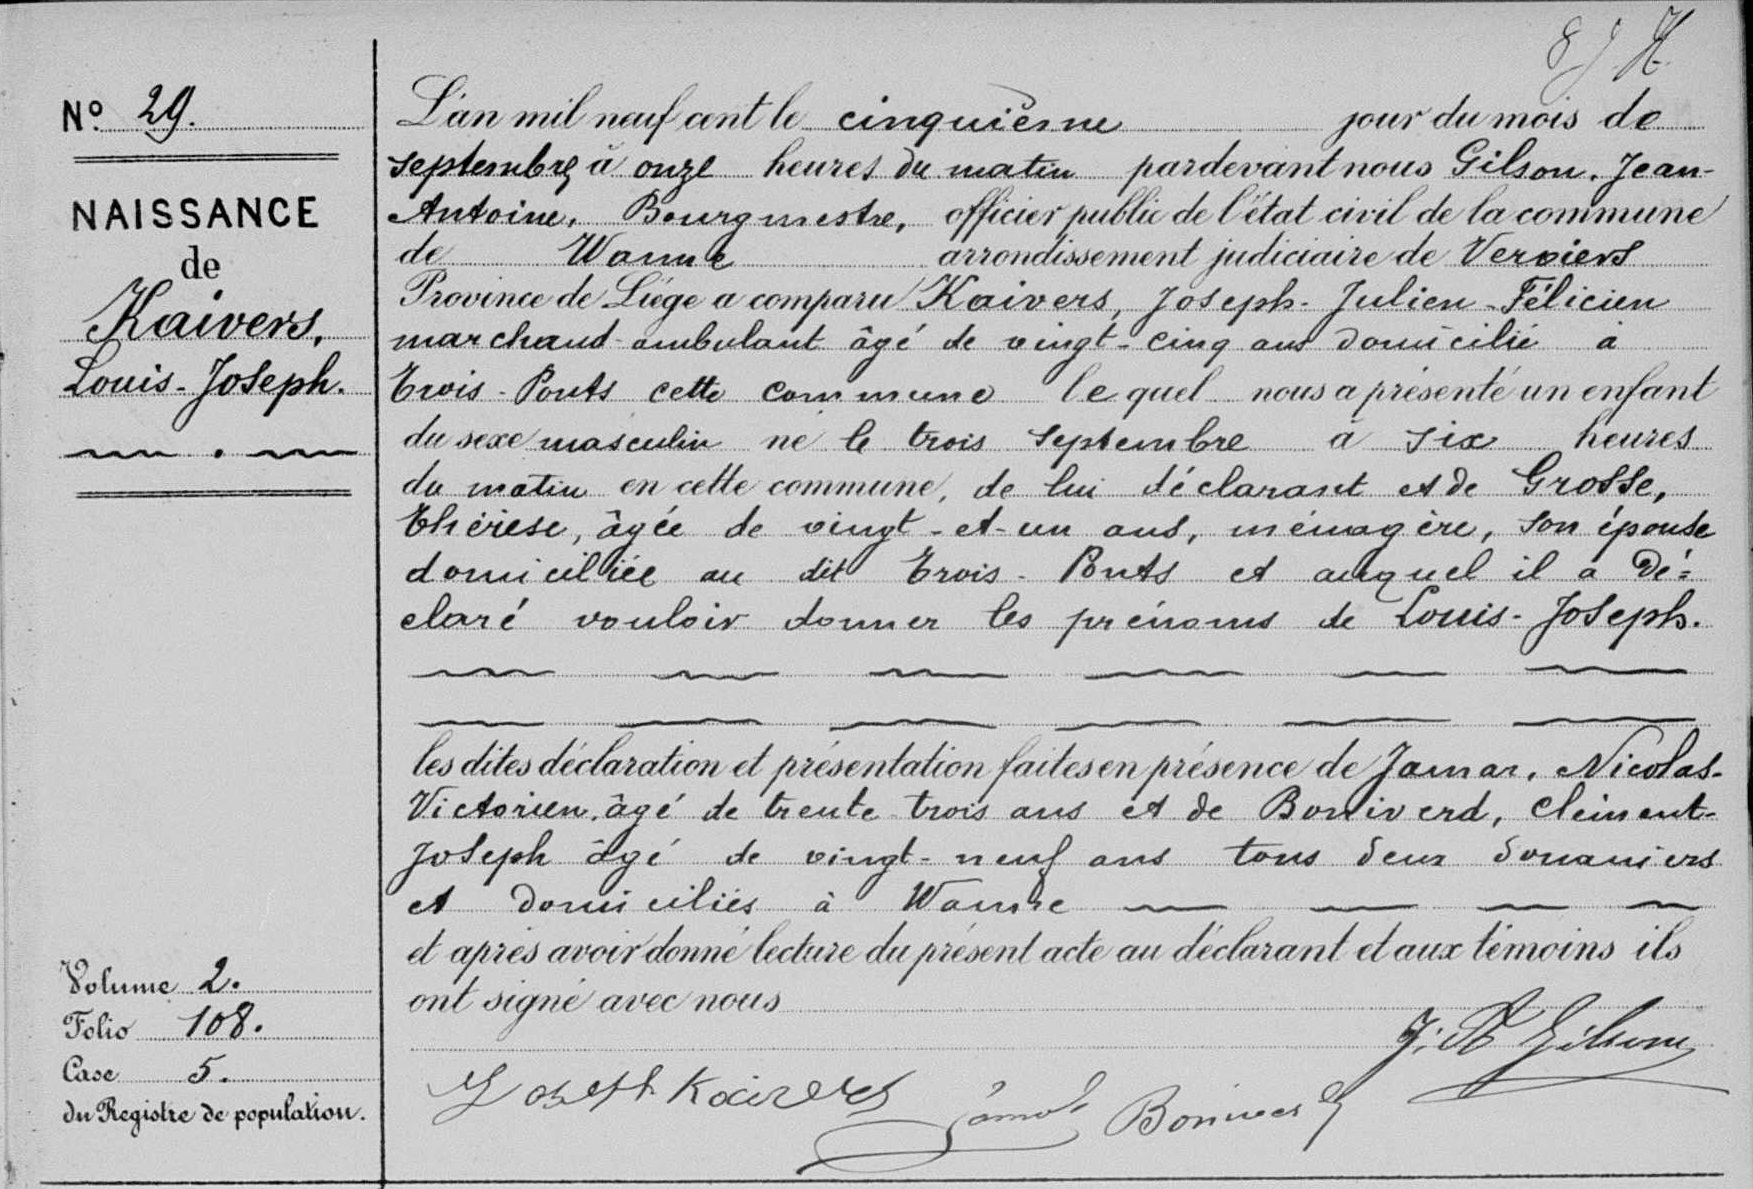 N° 29.
NAISSANCE
de
Kaivers,
Louis-Joseph.
Volume 2.
Folio 108.
Case 5.
du Registre de population.
L'an mil neuf cent le cinquième jour du mois de
septembre à onze heures du matin pardevant nous Gilson, Jean-
Antoine, Bourgmestre, officier public de l'état civil de la commune
de Wanne arrondissement judiciaire de Verviers
Province de Liége a comparu Kaivers, Joseph-Julien-Félicien
marchand-ambulant âgé de vingt-cinq ans domicilié à
Trois-Ponts cette commune lequel nous a présenté un enfant
du sexe masculin né le trois septembre à six heures
du matin en cette commune, de lui déclarant et de Grosse,
Thérèse, âgée de vingt-et-un ans, ménagère, son épouse
domiciliée au dit Trois-Ponts et auquel il a dé=
claré vouloir donner les prénoms de Louis-Joseph.
les dites déclaration et présentation faites en présence de Jamar, Nicolas-
Victorien, âgé de trente-trois ans et de Boniverd, Clément-
Joseph âgé de vingt-neuf ans tous deux douaniers
et domiciliés à Wanne
et après avoir donné lecture du présent acte au déclarant et aux témoins ils
ont signé avec nous
J. A Gilson
Joseph Kaivers Jamar Boniverd